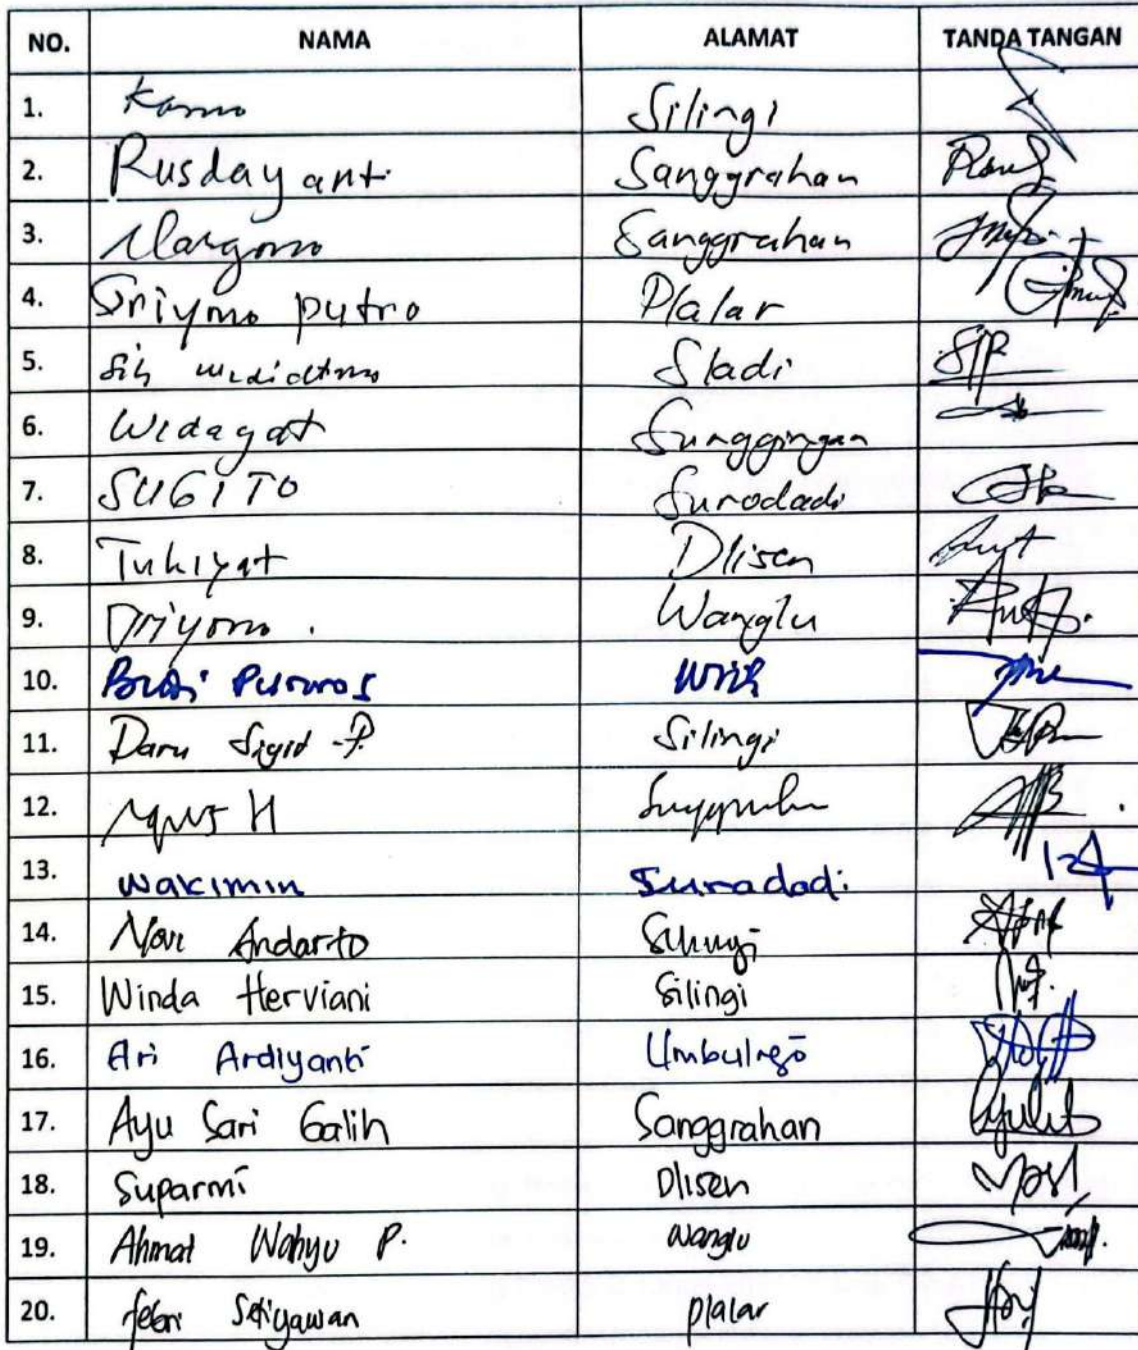 NO. NAMA ALAMAT TANDA TANGAN
1. Silingi
2. Rusdayanti Sanggrahan
3. Margono Sanggrahan
4. Sriyono putro Plalar
5. Sih Sladi
6. Widayat Sunggingan
7. SUGITO Surodadi
8. Tukiyat Dlisen
9. Driyono. Wanglu
10. Budi
11. Daru Sigid P Silingi
12. Agus H
13. Wakimin Suradadi
14. Novi Andarto Silingi
15. Winda Herviani Silingi
16. Ari Ardiyanti Umbulrejo
17. Ayu Sari Galih Sanggrahan
18. Suparmi Dlisen
19. Ahmat Wahyu P. Wanglu
20. febri Setiyawan plalar